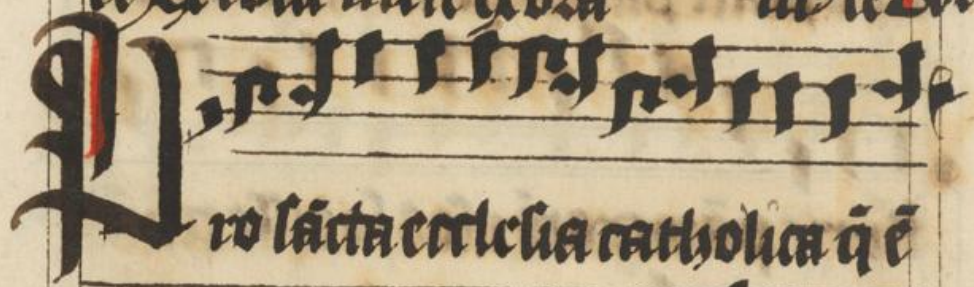 Pro sācta ecclesia catholica q̄ ē